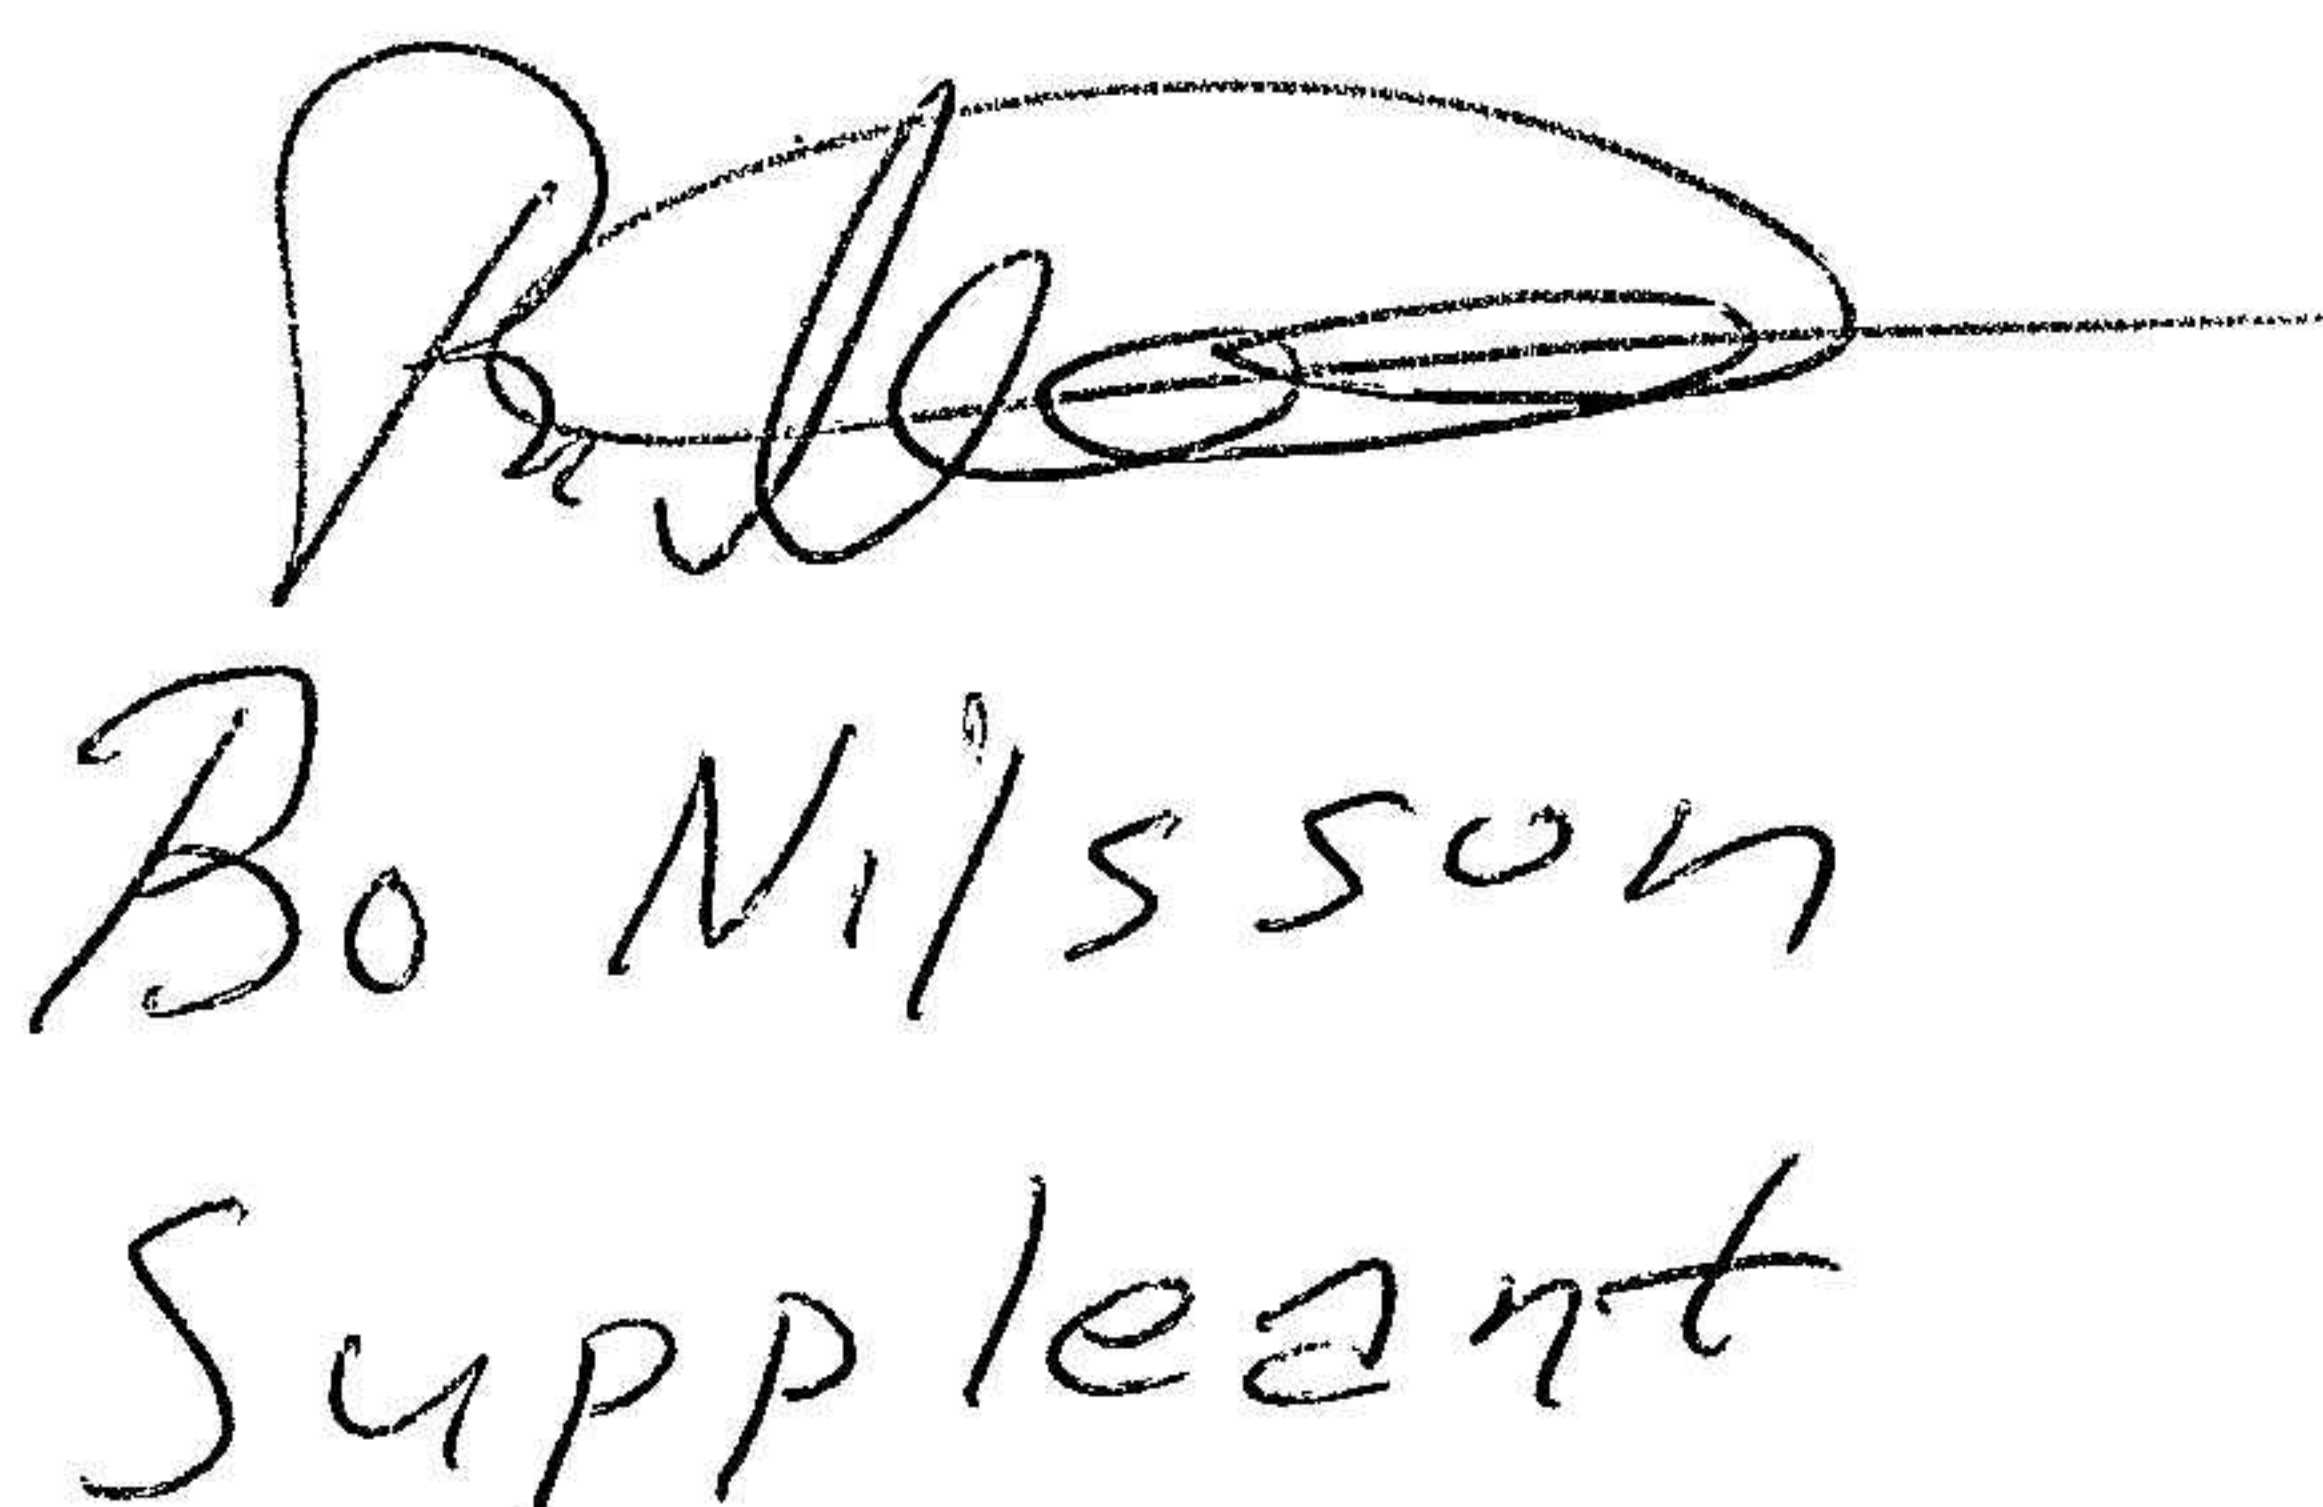 Bo Nilsson
Suppleant